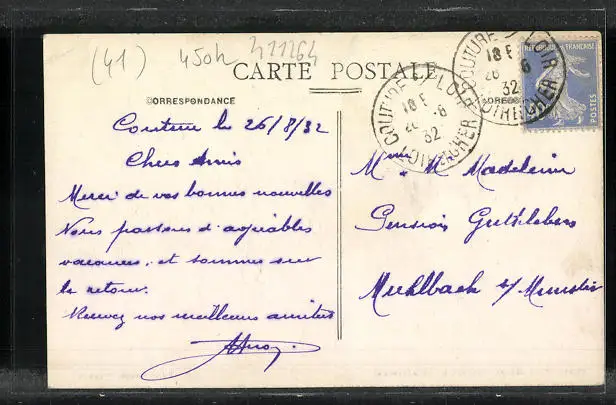 (41) 450h 411164
CARTE POSTALE
CORRESPONDANCE
ADRESSE
Couture le 26/8/32
Chers Amis
Merci de vos bonnes nouvelles
Nous passons d'agréables
vacances, et sommes sur
le retour.
Recevez nos meilleures amitiés
Mme & Mr Madelein
Pension
Muhlbach s/ Munster
REPUBLIQUE FRANÇAISE
POSTES
COUTURE S. LOIR
18 E
26 -8
32
LOIR ET CHER
COUTURE S. LOIR
18 E
26 -8
32
LOIR ET CHER